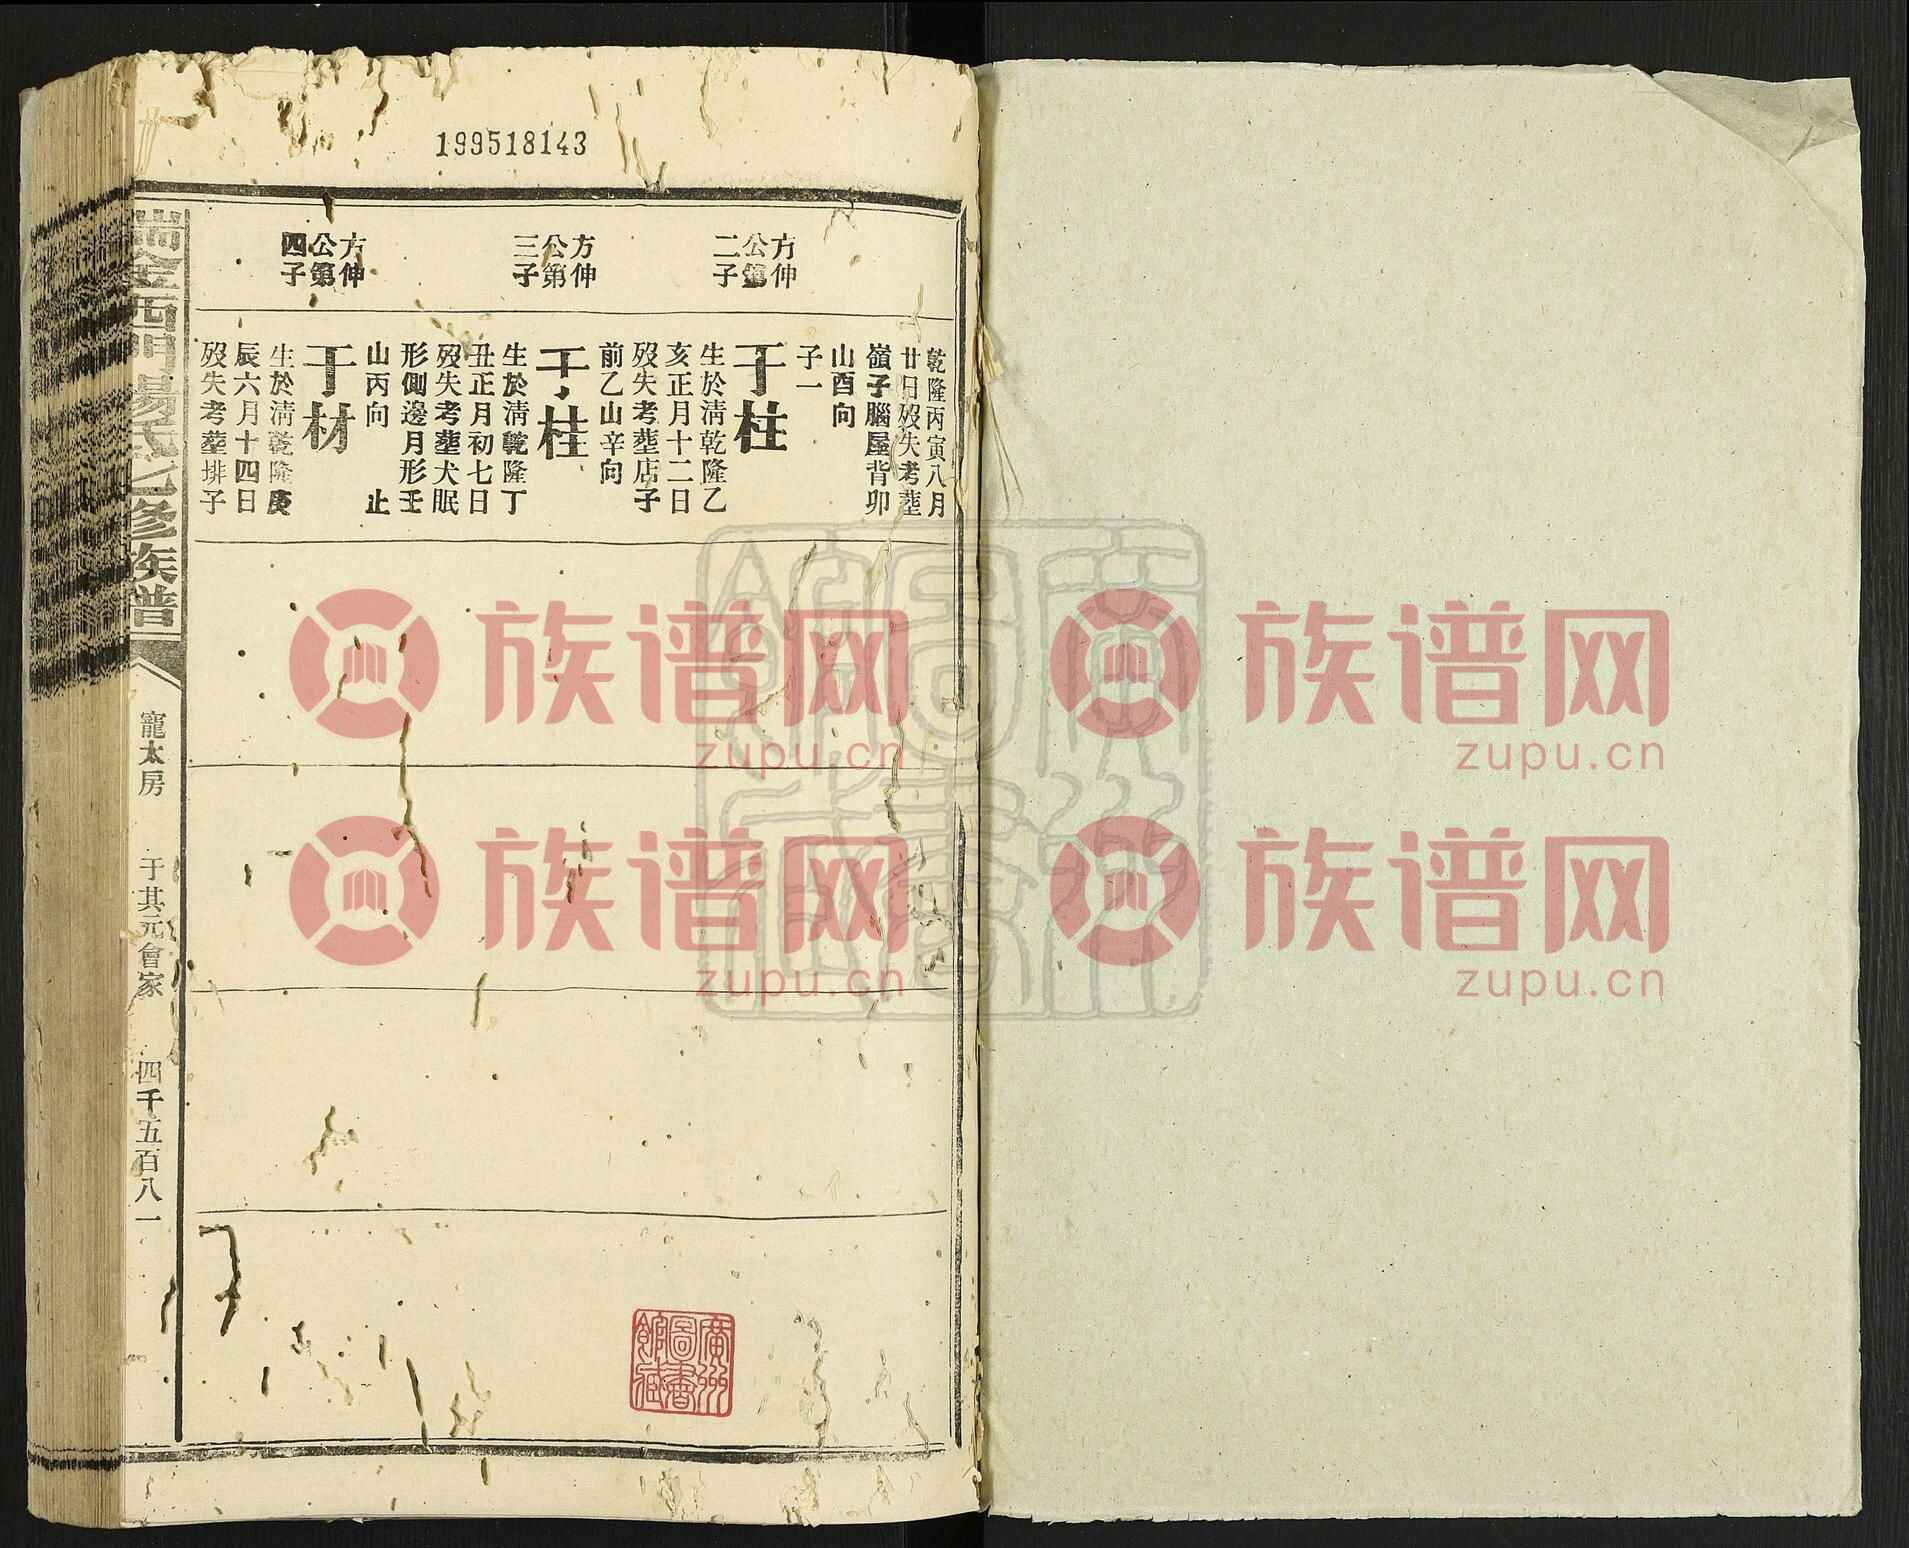 199518143
方伸
公第
二子
方伸
公第
三子
方伸
公第
四子
乾隆丙寅八月
廿日歿失考塟
嶺子腦屋背卯
山酉向
子一
于柱
生於淸乾隆乙
亥正月十二日
歿失考塟店子
前乙山辛向
于桂
生於淸乾隆丁
丑正月初七日
歿失考塟犬眠
形側邊月形壬
山丙向 止
于材
生於淸乾隆庚
辰六月十四日
歿失考塟排子
瑞金西門楊氏七修族譜
寵太房
于其元會家
四千五百八一
廣州
圖書
館藏
族谱网
zupu.cn
族谱网
zupu.cn
族谱网
zupu.cn
族谱网
zupu.cn